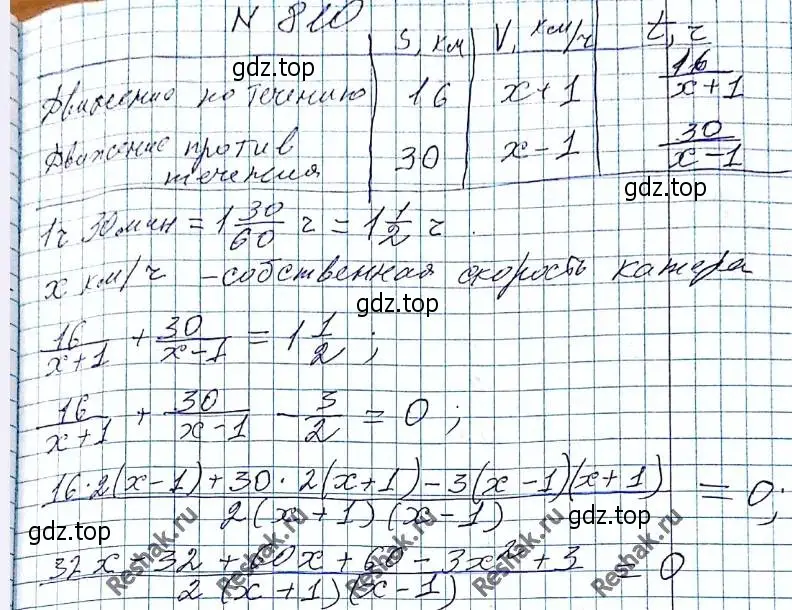 N 810
S, км V, км/ч t, ч
gdz.top gdz.top
Движение по течению 16 x+1 16/(x+1)
Движение против 30 x-1 30/(x-1)
течения
gdz.top
1ч 30мин = 1 30/60 ч = 1 1/2 ч.
x км/ч - собственная скорость катера
gdz.top
16/(x+1) + 30/(x-1) = 1 1/2;
16/(x+1) + 30/(x-1) - 3/2 = 0;
(16·2(x-1)+30·2(x+1)-3(x-1)(x+1))/(2(x+1)(x-1)) = 0;
gdz.top gdz.top
(32x-32+60x+60-3x²+3)/(2(x+1)(x-1)) = 0
Reshak.ru Reshak.ru Reshak.ru